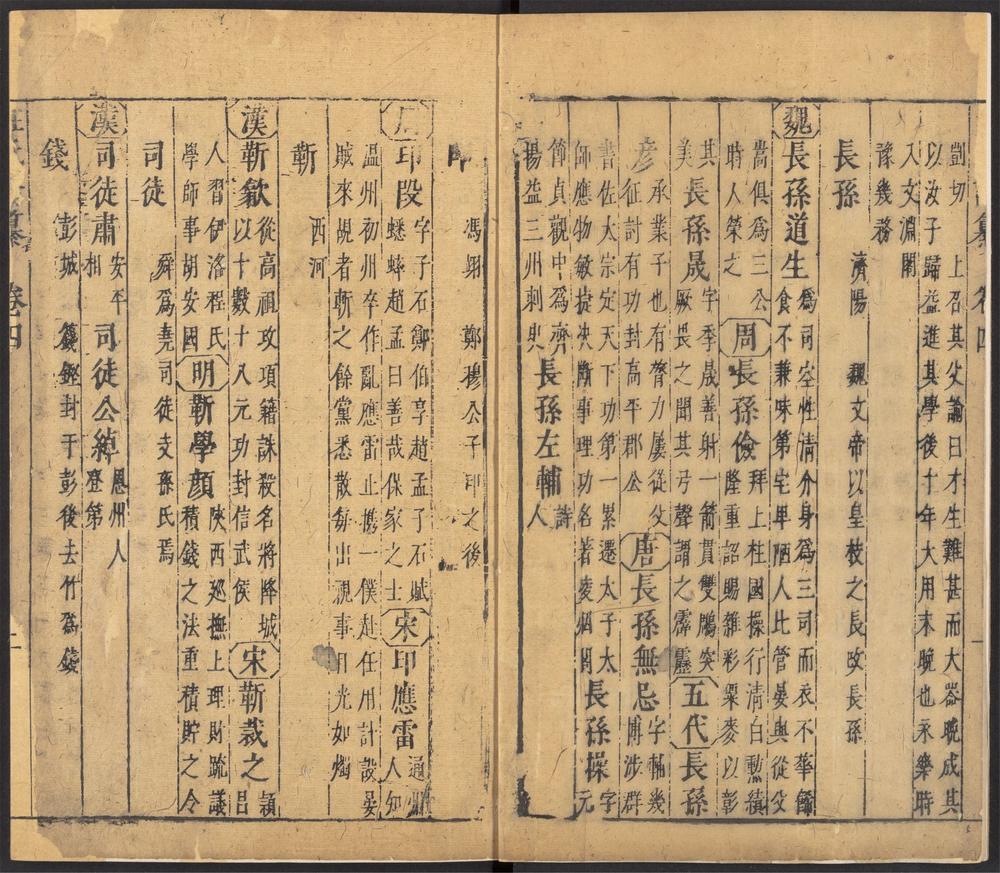 剴切 上召其父諭曰才生難甚而大器晚成其
以汝子歸益進其學後十年大用未晚也永樂時
入文淵閣
豫幾務
長孫 濟陽 魏文帝以皇枝之長改長孫
魏 長孫道生 為司空性清介身為三司而衣不華餙
食不兼味第宅卑陋人比管晏與從父
嵩俱為三公
時人榮之
周 長孫儉 拜上柱國操行清白勳績
隆重詔賜雜彩粟麥以彰
其
美
長孫晟 字季晟善射一箭貫雙鵰突
厥畏之聞其弓聲謂之霹靂
五代 長孫
彥 承業子也有膂力屢從父
征討有功封高平郡公
唐 長孫無忌 字輔幾
博涉群
書佐太宗定天下功第一累遷太子太
師應物敏捷決斷事理功名著凌烟閣
長孫操 字
元
節貞觀中為齊
楊益三州刺史
長孫左輔 詩
人
印 馮翊 鄭穆公子印之後
周 印段 字子石鄭伯享趙孟子石賦
蟋蟀趙孟曰善哉保家之士
宋 印應雷 通州
人知
溫州初州卒作亂應雷止携一僕赴任用計設宴
賊來覘者斬之餘黨悉散毎出視事目光如燭
靳 西河
漢 靳歙 從高祖攻項籍誅殺名將降城
以十數十人元功封信武侯
宋 靳裁之 潁
昌
人習伊洛程氏
學師事胡安國
明 靳學顏 陝西廵撫上理財疏議
積錢之法重積貯之令
司徒 舜為堯司徒支孫氏焉
漢 司徒肅 安平
相
司徒公綽 恩州人
登第
錢 彭城 籛鏗封于彭後去竹為錢
卷四